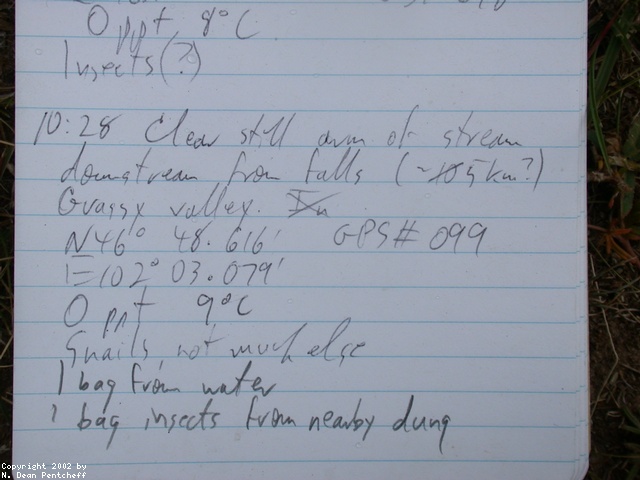 0 ppt, 8°C
Insects(?)
10:28 Clear still arm of stream
downstream from falls (~5km?)
Grassy valley.
N46° 48.616' GPS# 099
E102° 03.079'
0 ppt 9°C
Snails, not much else
1 bag from water
1 bag insects from nearby dung
Copyright 2002 by
N. Dean Pentcheff